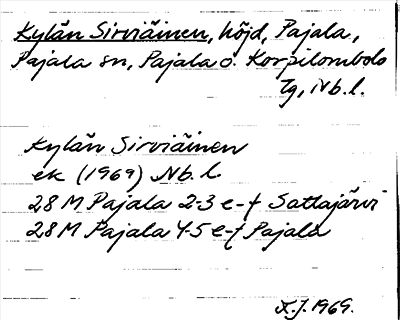 Kylän Sirviäinen, höjd, Pajala,
Pajala sn, Pajala o. Korpilombolo
tg, Nb.l.
Kylän Sirviäinen
ek (1969) Nb.l.
28 M Pajala 2-3 e-f Sattajärvi
28 M Pajala 4-5 e-f Pajala
1969.